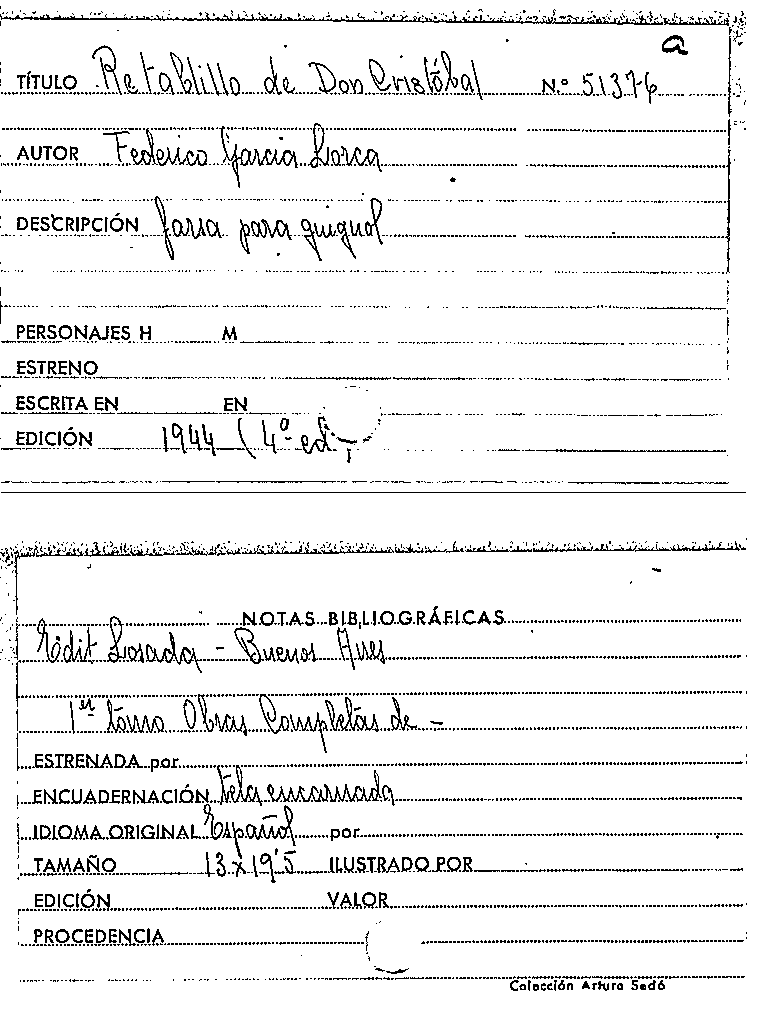 a
TÍTULO Retablillo de Don Cristóbal N.º 51376
AUTOR Federico Garcia Lorca
DESCRIPCIÓN farsa para guignol
PERSONAJES H M
ESTRENO
ESCRITA EN EN
EDICIÓN 1944 (4ª ed.
NOTAS BIBLIOGRÁFICAS
Edit Losada - Buenos Aires
1er tomo Obras Completas de -
ESTRENADA por
ENCUADERNACIÓN tela encarnada
IDIOMA ORIGINAL Español por
TAMAÑO 13x19'5 ILUSTRADO POR
EDICIÓN VALOR
PROCEDENCIA
Colección Arturo Sedó